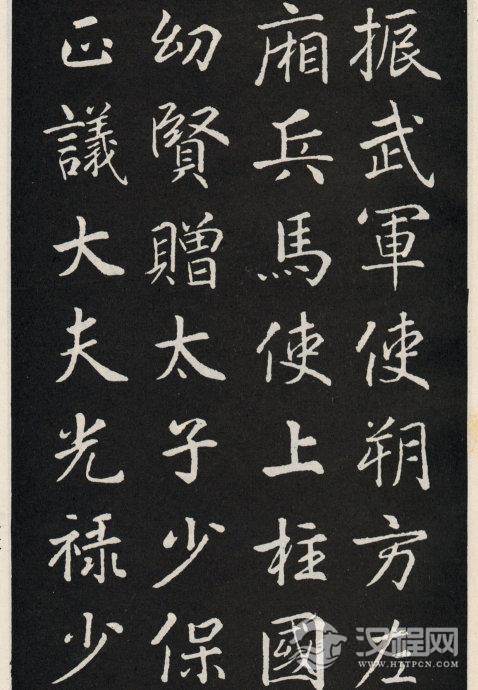 振武軍使朔方左
廂兵馬使上柱國
幼賢贈太子少保
正議大夫光禄少
汉程网
WWW.HTTPCN.COM